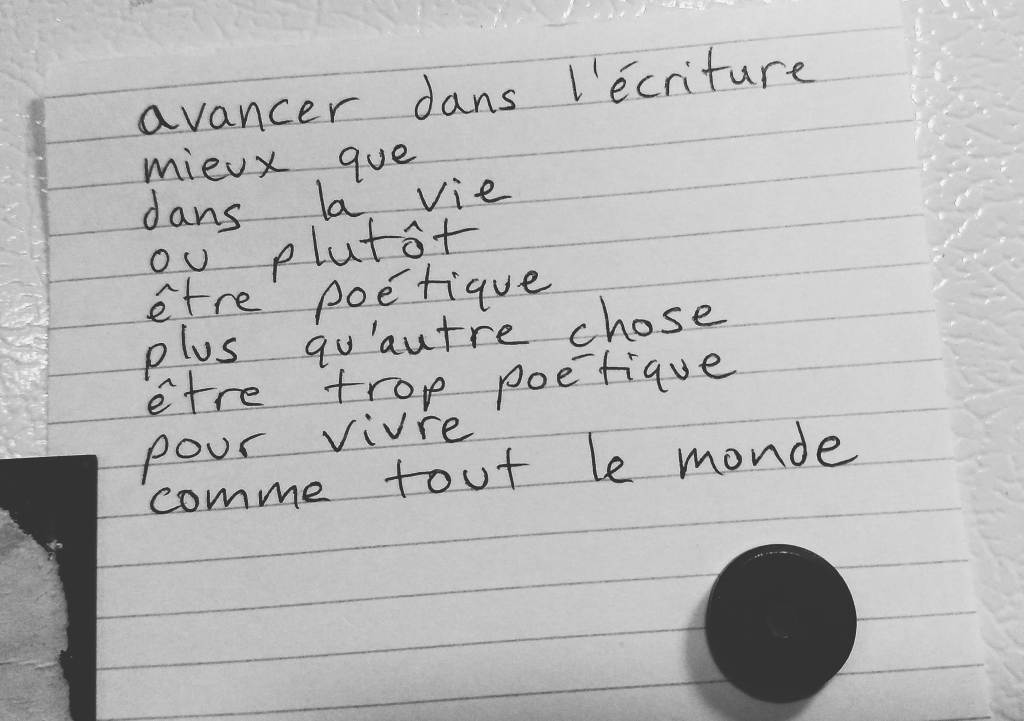 avancer dans l'écriture
mieux que
dans la vie
ou plutôt
être poétique
plus qu'autre chose
être trop poétique
pour vivre
comme tout le monde